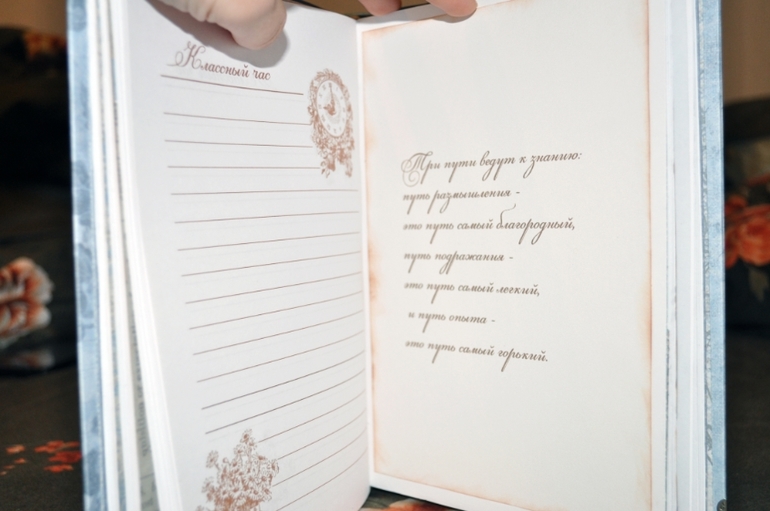 Классный час
Три пути ведут к знанию:
путь размышления -
это путь самый благородный,
путь подражания -
это путь самый легкий,
и путь опыта -
это путь самый горький.